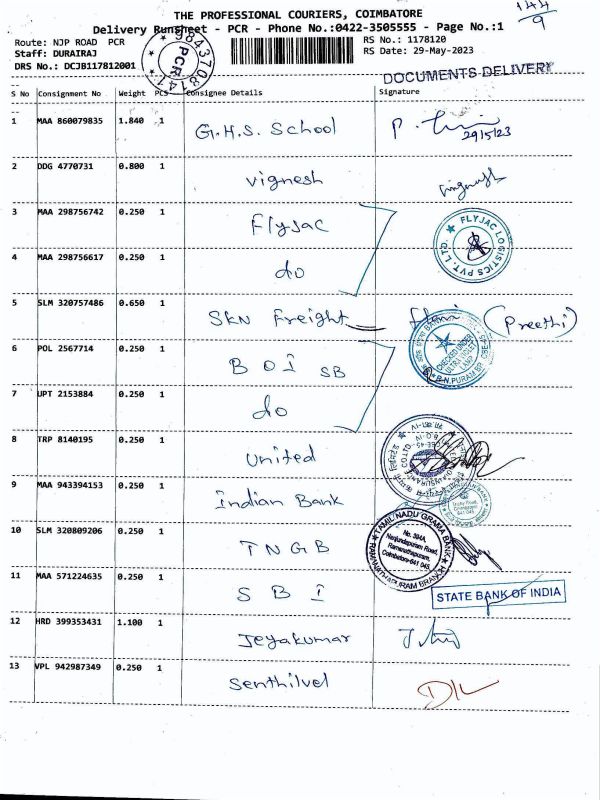 THE PROFESSIONAL COURIERS, COIMBATORE
Delivery Runsheet - PCR - Phone No.:0422-3505555 - Page No.:1
144/9
Route: NJP ROAD PCR
RS No.: 1178120
Staff: DURAIRAJ
RS Date: 29-May-2023
DRS No.: DCJB117812001
PCR
DOCUMENTS DELIVERY
S No Consignment No Weight PCS Consignee Details Signature
1 MAA 860079835 1.840 1 G.H.S. School
29/5/23
2 DDG 4770731 0.800 1 Vignesh
3 MAA 298756742 0.250 1 Flyjac
FLYJAC LOGISTICS PVT. LTD.
4 MAA 298756617 0.250 1 do
5 SLM 320757486 0.650 1 SKN Freight (Preethi)
6 POL 2567714 0.250 1 BOI SB
CHECKED UNDER
ULTRA VIOLET
LAMP
7 UPT 2153884 0.250 1 do
8 TRP 8140195 0.250 1 United
9 MAA 943394153 0.250 1 Indian Bank
10 SLM 320809206 0.250 1 TNGB
TAMIL NADU GRAMA BANK
No. 394A,
Nanjundapuram Road,
Ramanathapuram,
Coimbatore-641 045.
RAMANATHAPURAM BRANCH
11 MAA 571224635 0.250 1 SBI
STATE BANK OF INDIA
12 HRD 399353431 1.100 1 Jeyakumar
13 VPL 942987349 0.250 1 Senthilvel